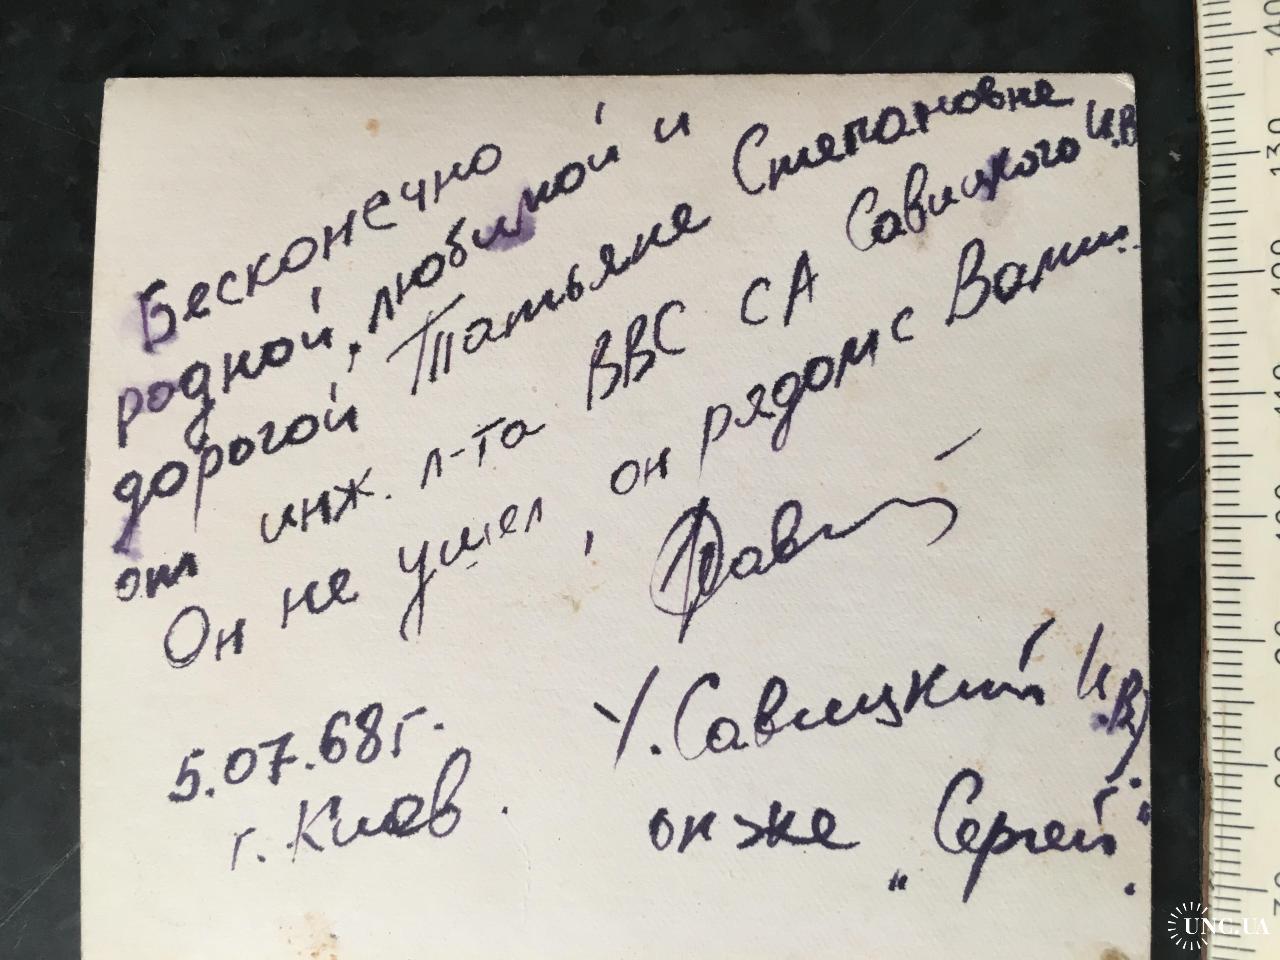 Бесконечно
родной, любимой и
дорогой Татьяне Степановне
от инж. л-та ВВС СА Савицкого И.В
Он не ушел, он рядом с Вами...
5.07.68г.
г. Киев.
Савицкий И.В)
он же „Сергей".
UNC.UA
140
130